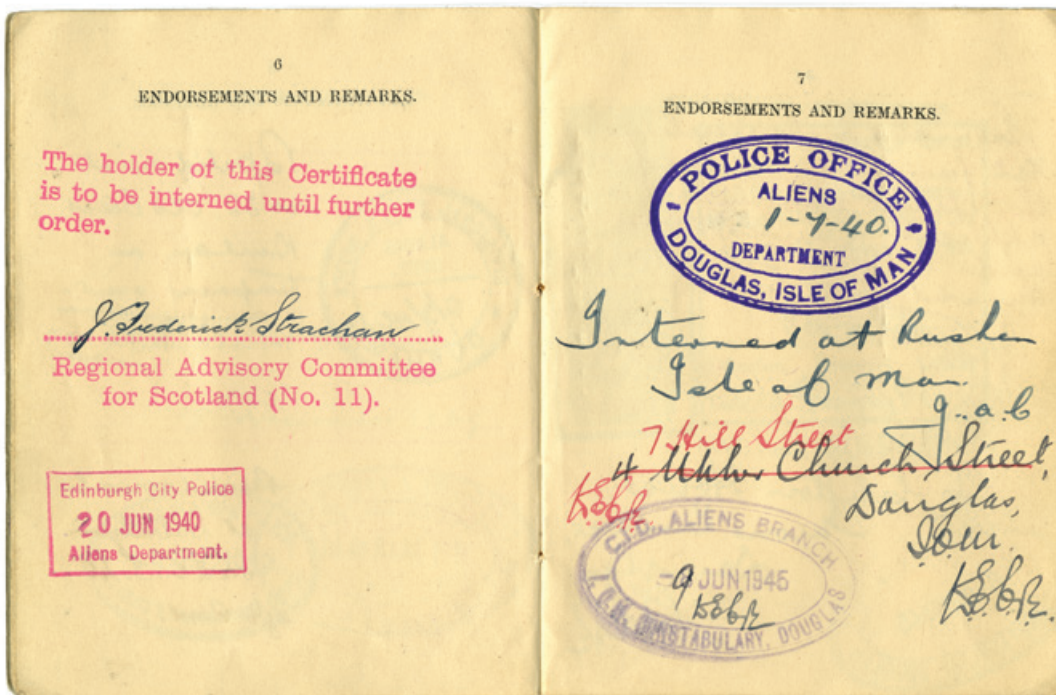 6
ENDORSEMENTS AND REMARKS.
The holder of this Certificate
is to be interned until further
order.
J. Frederick Strachan
Regional Advisory Committee
for Scotland (No. 11).
Edinburgh City Police
20 JUN 1940
Aliens Department.
7
ENDORSEMENTS AND REMARKS.
POLICE OFFICE
ALIENS
1-7-40.
DEPARTMENT
DOUGLAS, ISLE OF MAN
Interned at Rushen
Isle of Man.
7 Hill Street
4 Church Street,
Douglas,
I.O.M.
C.I.D., ALIENS BRANCH
JUN 1945
9
I.O.M. CONSTABULARY, DOUGLAS